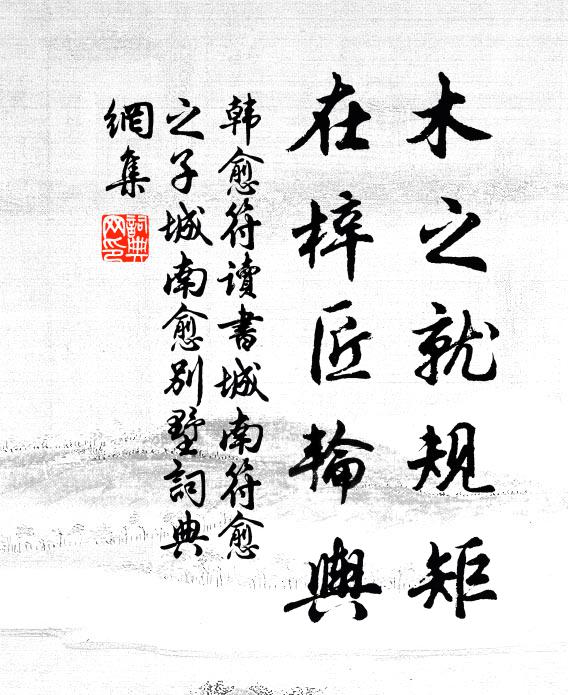 木之就規矩
在梓匠輪輿
韩愈符讀書城南符愈
之子城南愈别墅詞典
網集
詞典網印